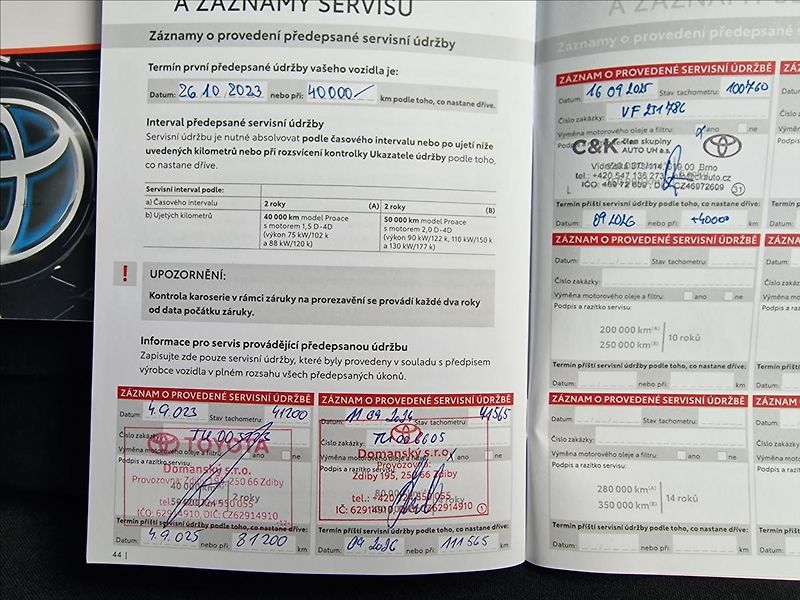 A ZÁZNAMY SERVISU
Záznamy o provedení předepsané servisní údržby
Termín první předepsané údržby vašeho vozidla je:
Datum: 26.10.2023 nebo při: 40000 km podle toho, co nastane dříve.
Interval předepsané servisní údržby
Servisní údržbu je nutné absolvovat podle časového intervalu nebo po ujetí níže
uvedených kilometrů nebo při rozsvícení kontrolky Ukazatele údržby podle toho,
co nastane dříve.
Servisní interval podle:
a) Časového intervalu 2 roky (A) 2 roky (B)
b) Ujetých kilometrů 40 000 km model Proace 50 000 km model Proace
s motorem 1,5 D-4D s motorem 2,0 D-4D
(výkon 75 kW/102 k (výkon 90 kW/122 k, 110 kW/150 k
a 88 kW/120 k) a 130 kW/177 k)
! UPOZORNĚNÍ:
Kontrola karoserie v rámci záruky na prorezavění se provádí každé dva roky
od data počátku záruky.
Informace pro servis provádějící předepsanou údržbu
Zapisujte zde pouze servisní údržby, které byly provedeny v souladu s předpisem
výrobce vozidla v plném rozsahu všech předepsaných úkonů.
ZÁZNAM O PROVEDENÉ SERVISNÍ ÚDRŽBĚ
Datum: 4.9.023 Stav tachometru: 41200
Číslo zakázky:
TOYOTA
Výměna motorového oleje a filtru:
Domanský s.r.o.
Podpis a razítko servisu:
Provozovna: Zdiby 195, 250 66 Zdiby
40 000 km
2 roky
IČO: 62914910, DIČ: CZ62914910
Termín příští servisní údržby podle toho, co nastane dříve:
Datum: 4.9.025 nebo při: 81200 km
44
ZÁZNAM O PROVEDENÉ SERVISNÍ ÚDRŽBĚ
Datum: 11.09.2024 Stav tachometru: 41565
Číslo zakázky:
Výměna motorového oleje a filtru: ano ne
Domanský s.r.o.
Podpis a razítko servisu:
Provozovna:
Zdiby 195, 250 66 Zdiby
IČ: 62914910, DIČ: CZ62914910
Termín příští servisní údržby podle toho, co nastane dříve:
Datum: 09 2026 nebo při: 111565 km
A ZÁZNAMY SE
Záznamy o provedení předepsané s
ZÁZNAM O PROVEDENÉ SERVISNÍ ÚDRŽBĚ
Datum: 16 09 2025 Stav tachometru: 100760
Číslo zakázky: VF 231786
Výměna motorového oleje a filtru: ano ne
C&K člen skupiny
AUTO UH a.s.
Brno
31
Termín příští servisní údržby podle toho, co nastane dříve:
Datum: 09 2026 nebo při: +40000 km
ZÁZNAM O PROVEDENÉ SERVISNÍ ÚDRŽBĚ
Datum: Stav tachometru:
Číslo zakázky:
Výměna motorového oleje a filtru: ano ne
Podpis a razítko servisu:
200 000 km(A)
250 000 km(B)
10 roků
Termín příští servisní údržby podle toho, co nastane dříve:
Datum: nebo při: km
ZÁZNAM O PROVEDENÉ SERVISNÍ ÚDRŽBĚ
Datum: Stav tachometru:
Číslo zakázky:
Výměna motorového oleje a filtru: ano ne
Podpis a razítko servisu:
280 000 km(A)
350 000 km(B)
14 roků
Termín příští servisní údržby podle toho, co nastane dříve:
Datum: nebo při: km